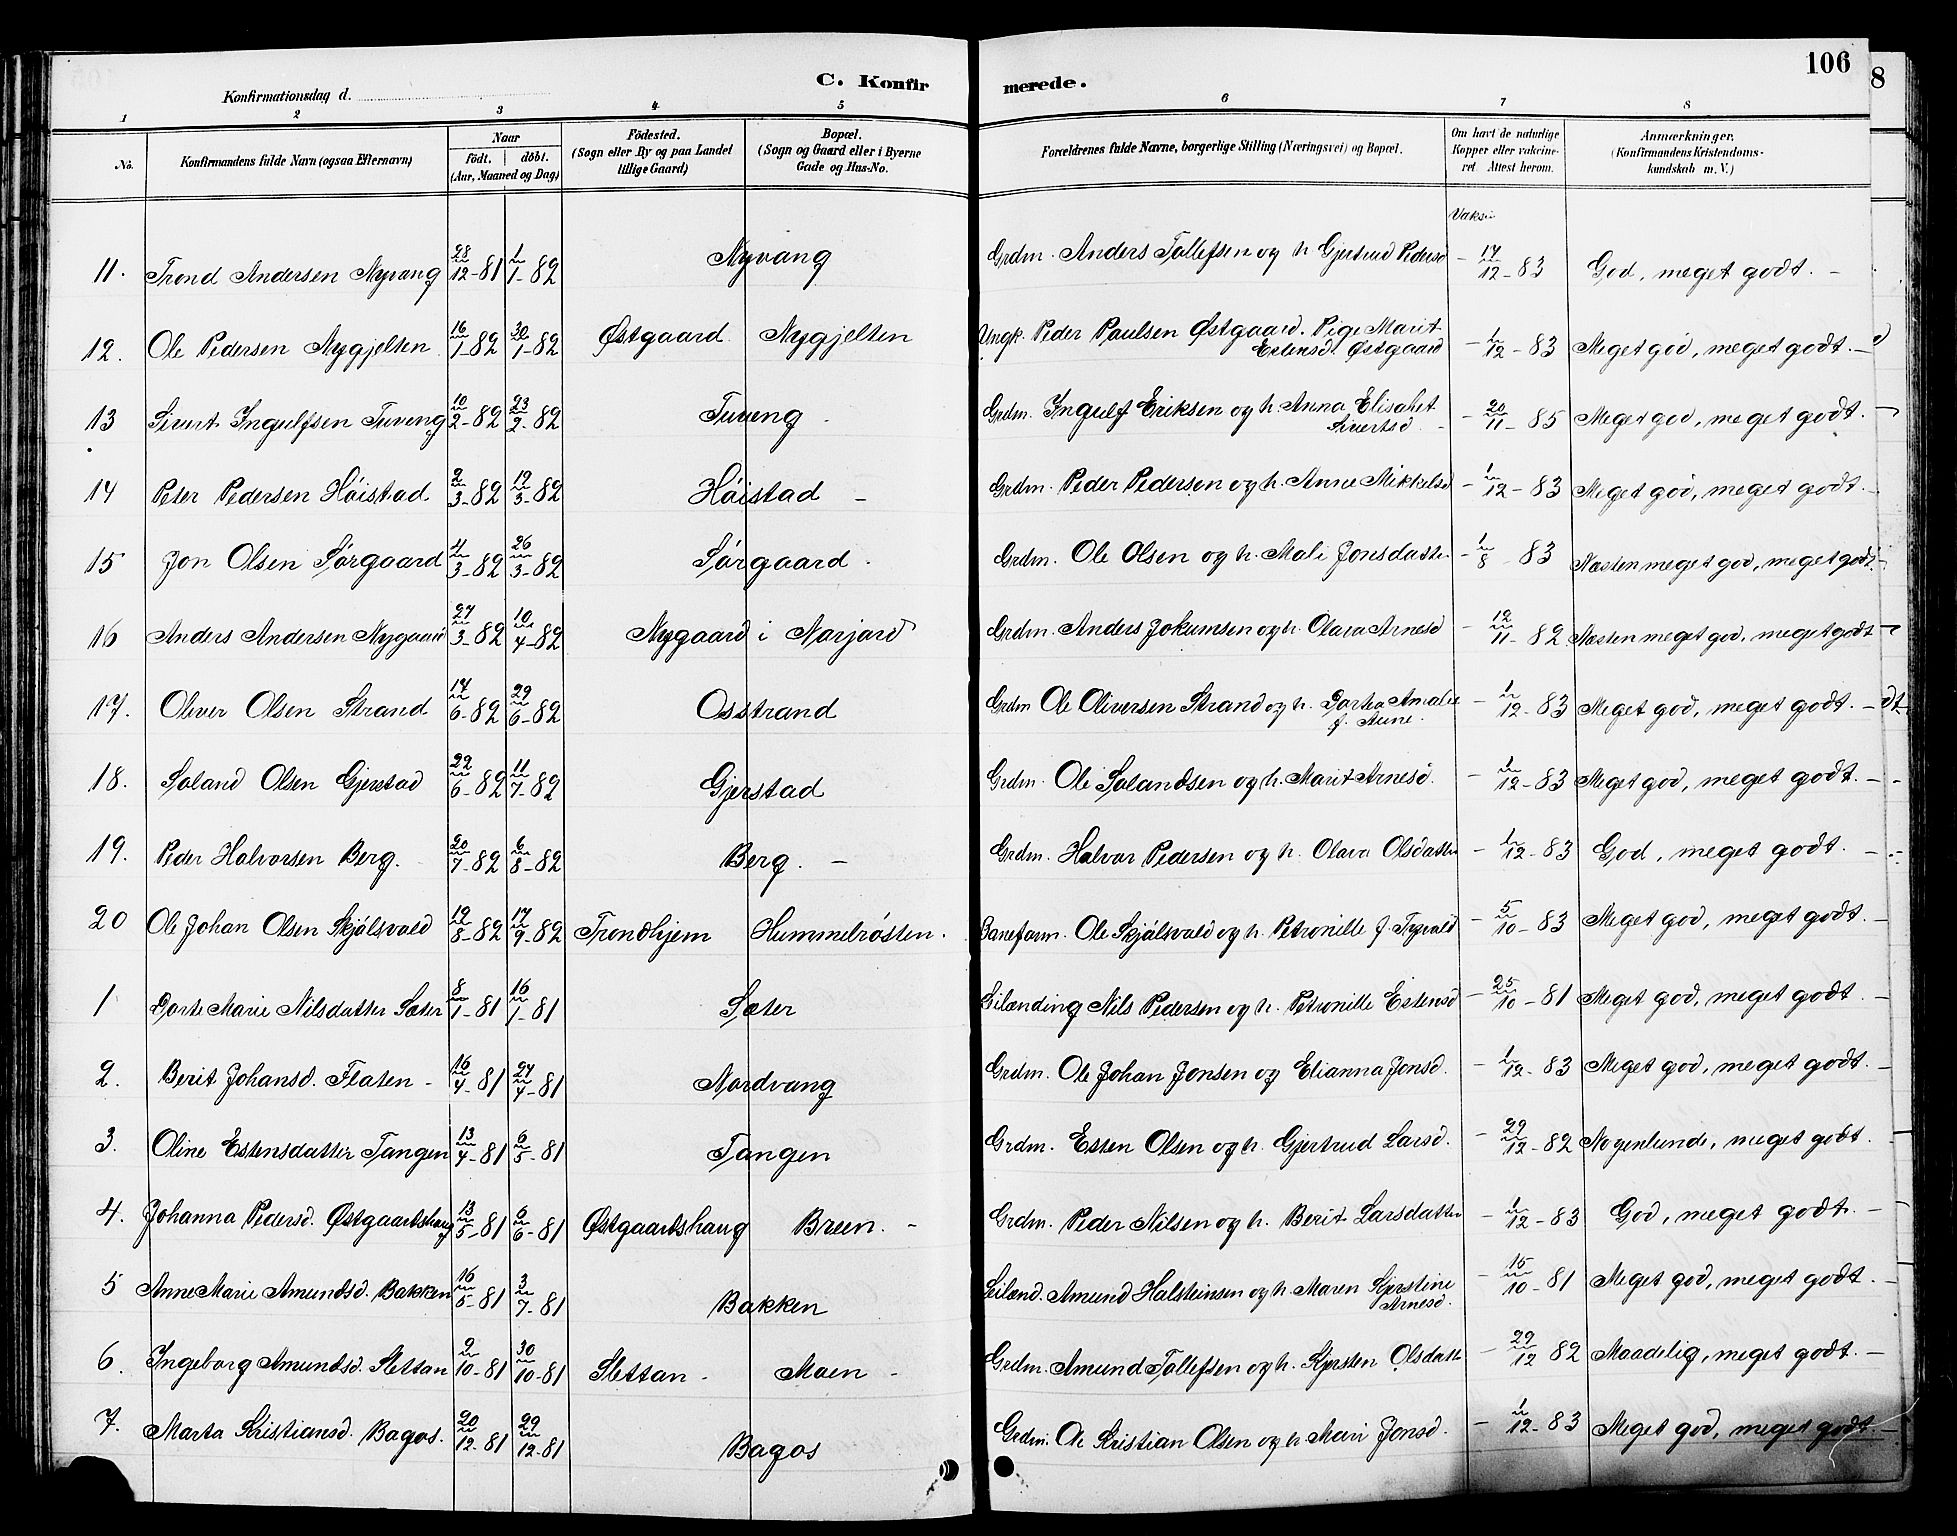 106
8
C. Konfir merede.
Konfirmationsdag d.
1 2 3 4 5 6 7 8
No. Konfirmandens fulde Navn (ogsaa Efternavn) Naar födt. döbt. (Aar, Maaned og Dag) Födested. (Sogn eller By og paa Landet tillige Gaard) Bopæl. (Sogn og Gaard eller i Byerne Gade og Hus-No. Forældrenes fulde Navne, borgerlige Stilling (Næringsvei) og Bopæl. Om havt de naturlige Kopper eller vakcineret Attest herom. Anmærkninger. (Konfirmandens Kristendomskundskab m. V.)
Vaksin
11. Trond Andersen Nyvang 28/12-81 1/1-82 Nyvang Grdm. Anders Tollefsen og h. Gjertrud Pedersd - 17/12-83 God, meget godt. -
12. Ole Pedersen Nygjelten 16/1-82 30/1-82 Østgaard Nygjelten Ungk. Peder Paulsen Østgaard. Pige Marit Estensd. Østgaard - 1/12-83 Meget god, meget godt. -
13 Sivert Ingulfsen Tuveng 10/2-82 23/2-82 Tuveng - Grdm. Ingulf Eriksen og h. Anna Elisabet Sivertsd. - 20/11-85 Meget god, meget godt.
14 Peter Pedersen Höistad 2/3-82 12/3-82 Höistad - Grdm. Peder Pedersen og h. Anne Mikkelsd - 1/12-83 Meget god, meget godt.
15 Jon Olsen Sörgaard 4/3-82 26/3-82 Sörgaard. Grdm. Ole Olsen og h. Mali Jonsdatter - 1/8 83 Næsten meget god, meget godt.
16 Anders Andersen Nygaard 27/3-82 10/4-82 Nygaard i Narjord Grdm. Anders Jokumsen og h. Olava Arnesd - 12/11-82 Næsten meget god, meget godt
17. Oliver Olsen Strand 14/6-82 29/6-82 Osstrand Grdm Ole Oliversen Strand og h. Dortea Amalie f. Aune. - 1/12-83 Meget god, meget godt. -
18. Saland Olsen Gjerstad 22/6-82 11/7-82 Gjerstad Grdm. Ole Salandsen og h. Marit Arnesd. - 1/12-83 Meget god, meget godt. -
19. Peder Halvorsen Berg. 20/7-82 6/8-82 Berg. - Grdm. Halvor Pedersen og h. Olava Olsdatter - 1/12-83 God, meget godt. -
20 Ole Johan Olsen Skjölsvold 12/8-82 17/9-82 Trondhjem Hummelrösten. Baneform. Ole Skjölsvold og h. Petronille f. - 5/10-83 Meget god, meget godt. -
1 Dorte Marie Nilsdatter Sæter 8/1-81 16/1-81 Sæter Leilænding Nils Pedersen og h. Petronille Estensd - 25/10-81 Meget god, meget godt. -
2. Berit Johansd. Flaten - 16/4-81 24/4-81 Nordvang Grdm. Ole Johan Jonsen og Elianna Jonsd. - 1/12-83 Meget god, meget godt. -
3. Oline Estensdatter Tangen 13/4-81 6/5-81 Tangen Grdm. Esten Olsen og h. Gjertrud Larsd. - 29/12-82 Nogenlunde, meget godt. -
4. Johanna Pedersd. Østgaardshaug 13/5-81 6/6-81 Østgaardshaug Breen. - Grdm. Peder Nilsen og h. Berit Larsdatter - 1/12-83 God, meget godt. -
5 Anne Marie Amundsd. Bakken 16/5-81 3/7-81 Bakken Leilænd. Amund Halsteinsen og h. Maren Kjerstine Arnesd. - 15/10-81 Meget god, meget godt. -
6. Ingeborg Amundsd. Slettan 2/10-81 30/10-81 Slettan - Moen - Grdm. Amund Tollefsen og h. Kjersten Olsdatt - 29/12 82 Maadelig, meget godt. -
7. Marta Kristiansd. Bagos. 20/12-81 29/12-81 Bagos Grdm. Ole Kristian Olsen og h. Mari Jonsd. - 1/12-83 Meget god, meget godt -